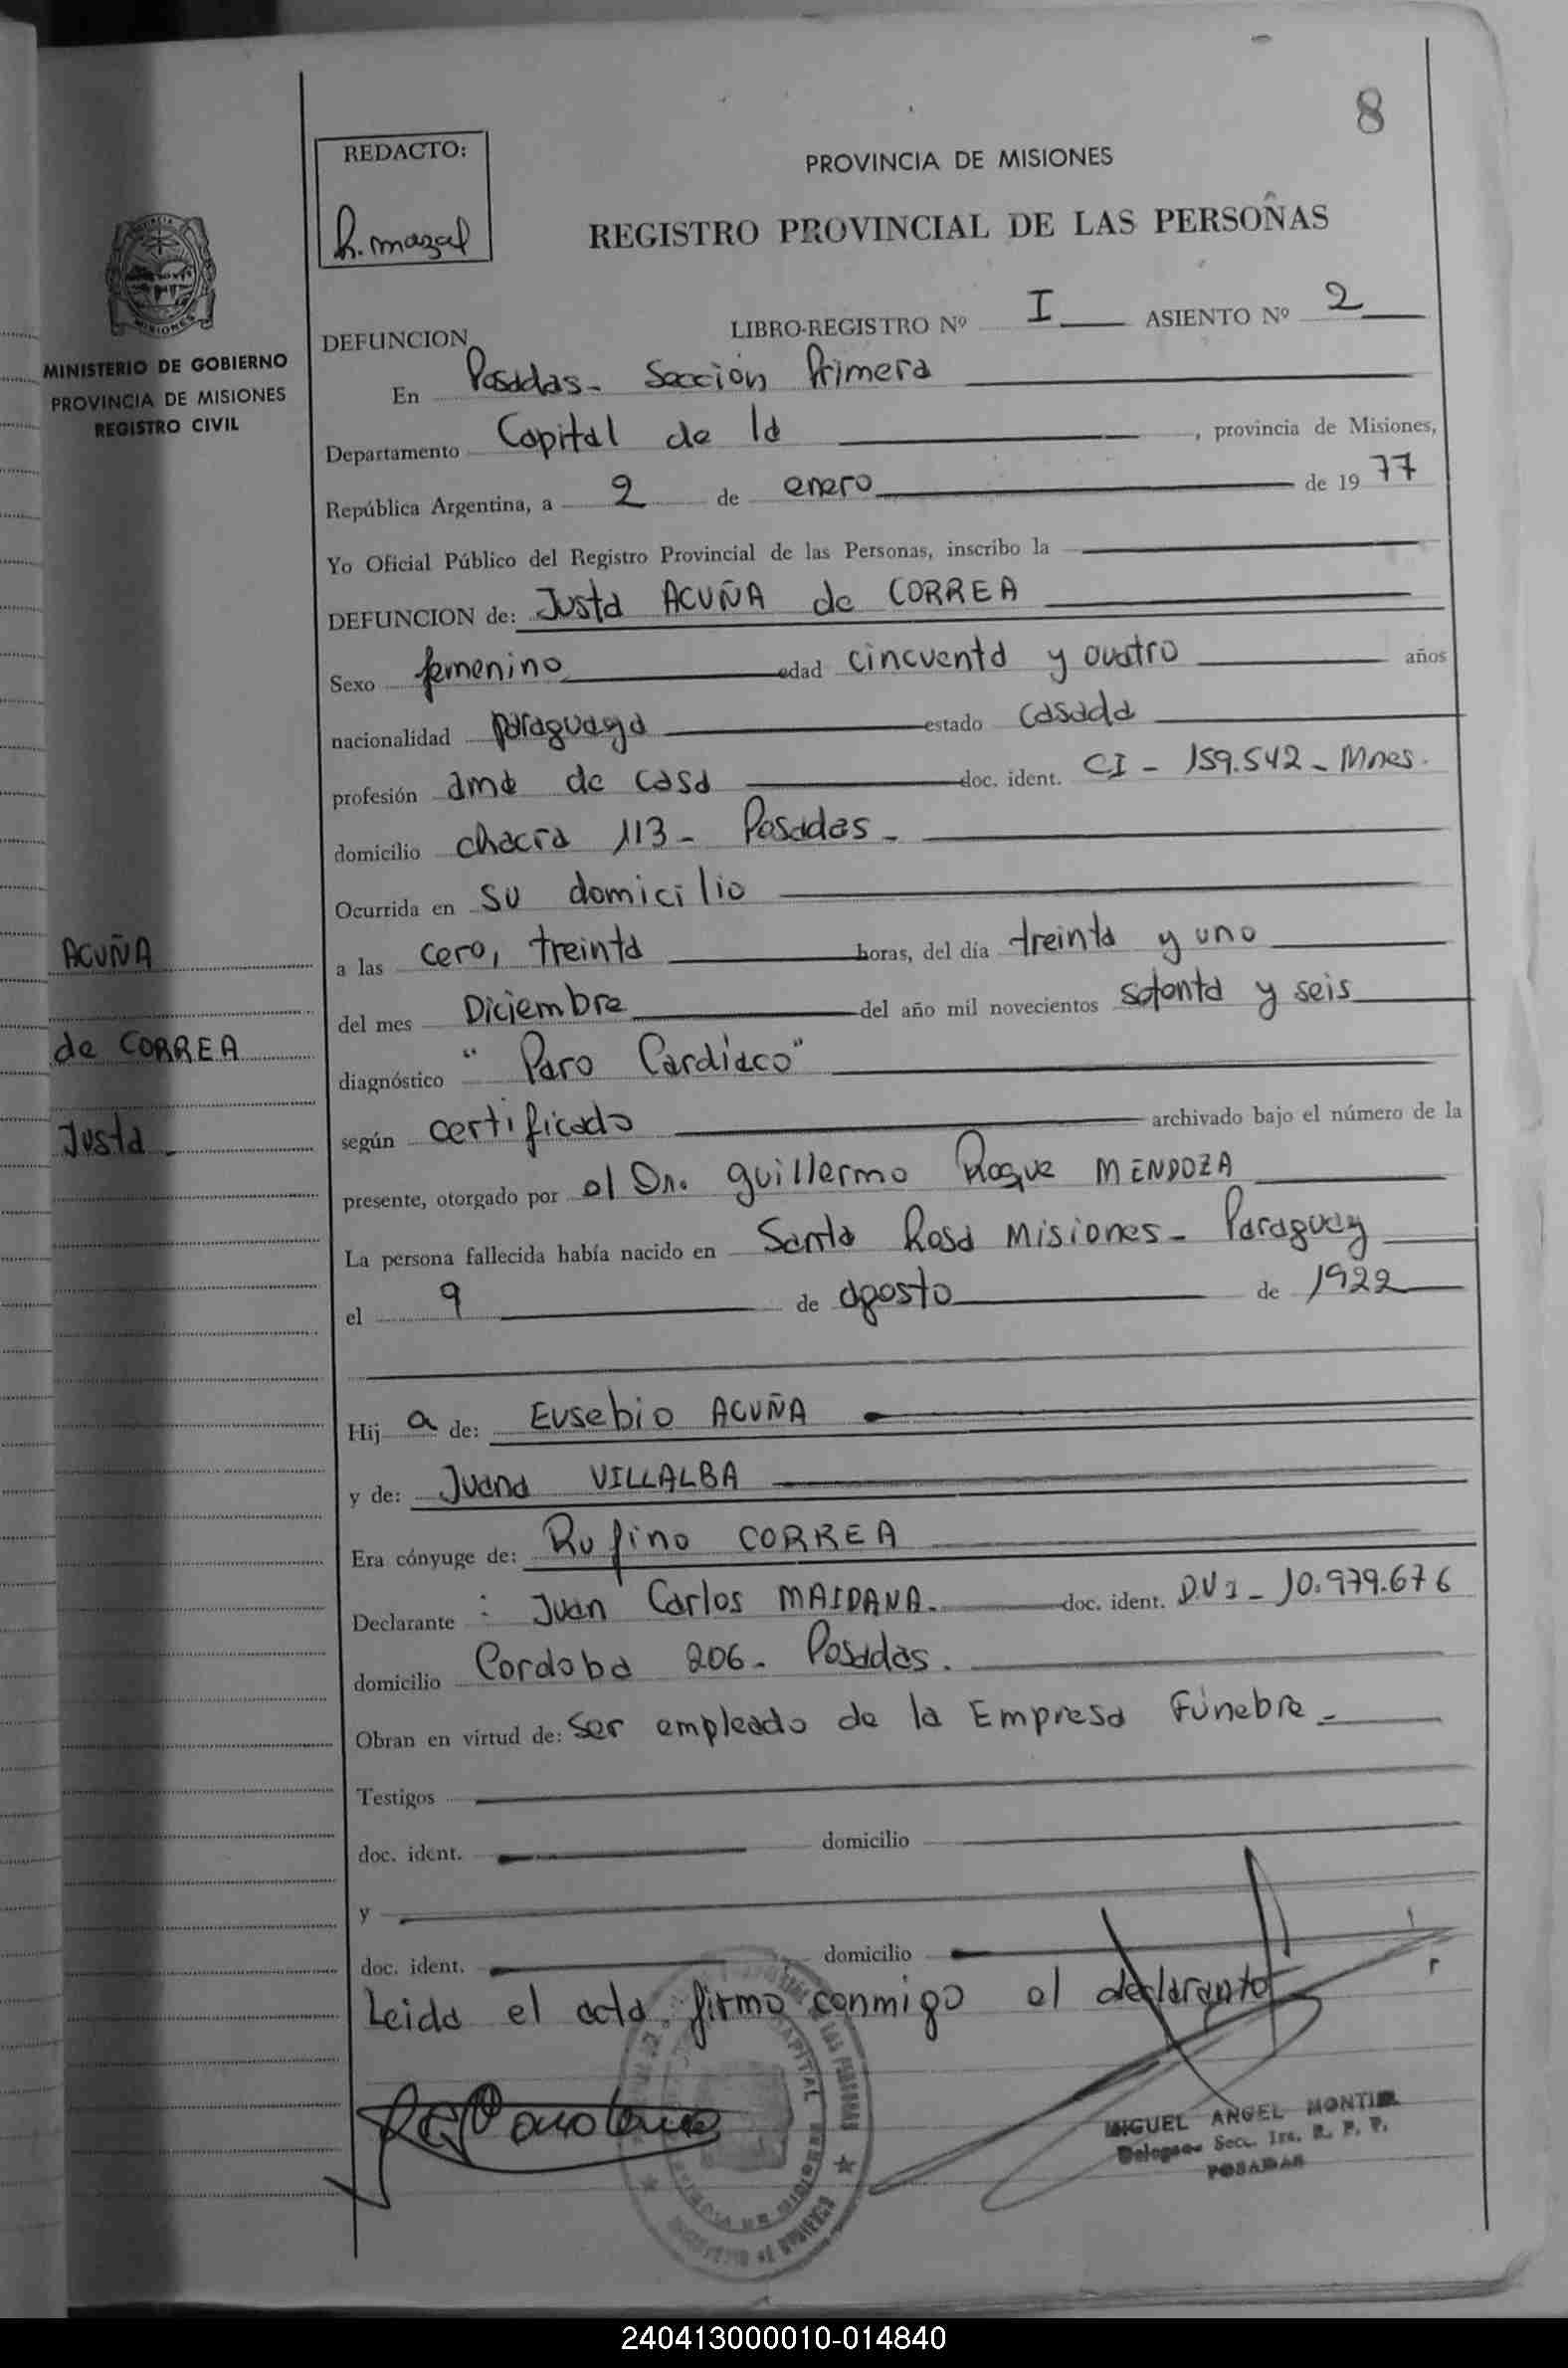 8
REDACTO:
h. mazal
PROVINCIA DE MISIONES
REGISTRO PROVINCIAL DE LAS PERSONAS
MINISTERIO DE GOBIERNO
PROVINCIA DE MISIONES
REGISTRO CIVIL
LIBRO-REGISTRO Nº I ASIENTO Nº 2
DEFUNCION
En Posadas - Sección Primera
Departamento Capital de la , provincia de Misiones,
República Argentina, a 2 de enero de 1977
Yo Oficial Público del Registro Provincial de las Personas, inscribo la
DEFUNCION de: Justa ACUÑA de CORREA
Sexo femenino edad cincuenta y cuatro años
nacionalidad paraguaya estado casada
profesión ama de casa doc. ident. CI - 159.542 - Mnes.
domicilio chacra 113 - Posadas -
Ocurrida en su domicilio
a las cero, treinta horas, del día treinta y uno
del mes Diciembre del año mil novecientos setenta y seis
diagnóstico "Paro Cardíaco"
según certificado archivado bajo el número de la
presente, otorgado por el Dr. Guillermo Roque MENDOZA
La persona fallecida había nacido en Santa Rosa Misiones - Paraguay
el 9 de agosto de 1922
ACUÑA
de CORREA
Justa -
Hij a de: Eusebio ACUÑA
y de: Juana VILLALBA
Era cónyuge de: Rufino CORREA
Declarante : Juan Carlos MAIDANA. doc. ident. D.N.I - 10.979.676
domicilio Cordoba 206 - Posadas.
Obran en virtud de: Ser empleado de la Empresa Fúnebre -
Testigos
doc. ident. domicilio
y
doc. ident. domicilio
Leida el acta firma conmigo el declarante
MIGUEL ANGEL
Secc. 1ra. R. P. P.
POSADAS
240413000010-014840